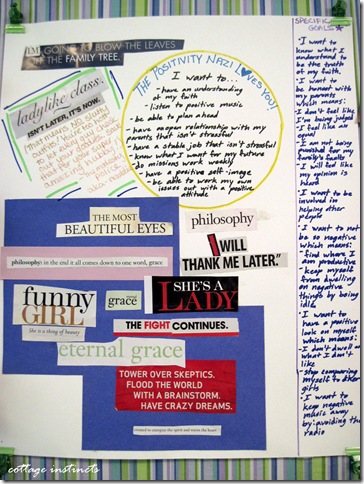 I'M GOING TO BLOW THE LEAVES
OFF THE FAMILY TREE.
ladylike class.
ISN'T LATER, IT'S NOW.
THE POSITIVITY NAZI LOVES YOU!
I want to...
- have an understanding
of my faith
- listen to positive music
- be able to plan ahead
- have an open relationship with my
parents that isn't stressful
- have a stable job that isn't stressful
- know what I want for my future
- do missions work weekly
- have a positive self-image
- be able to work my own
issues out with a positive
attitude
THE MOST
BEAUTIFUL EYES
philosophy
philosophy: in the end it all comes down to one word, grace
I WILL
THANK ME LATER."
funny
GIRL
She is a thing of beauty
grace
SHE'S A
LADY
THE FIGHT CONTINUES.
eternal grace
TOWER OVER SKEPTICS.
FLOOD THE WORLD
WITH A BRAINSTORM.
HAVE CRAZY DREAMS.
created to energize the spirit and warm the heart
cottage instincts
SPECIFIC
GOALS:
- I want to
know what I
understand to
be the truth
of my faith
- I want to
be honest with
my parents
which means:
- I don't feel like
I'm being judged
- I feel like an
equal
- I am not being
punished for my
family's faults
- I will feel like
my opinion is
heard
- I want to be
involved in
helping other
people
- I want to not
be so negative
which means:
- find where I
am productive
- keep myself
from dwelling
on negative
things by being
idle
- I want to
have a positive
look on myself
which means:
- I don't dwell on
what I don't
like
- stop comparing
myself to other
girls
- I want to
keep negative
music away
by: avoiding the
radio